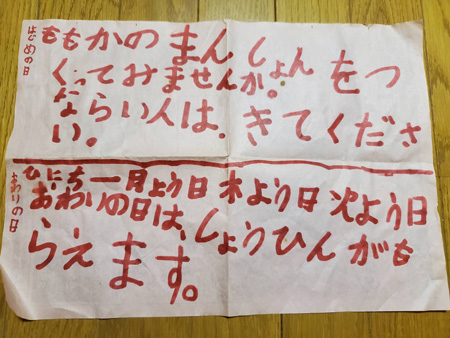 はじめの日
ももかの まんしょんをつ
くってみませんか。
ならい人は、きてくださ
い。
おわりの日
ひにち 一月よう日 木よう日 火よう日
おわりの日は、しょうひんがも
らえます。